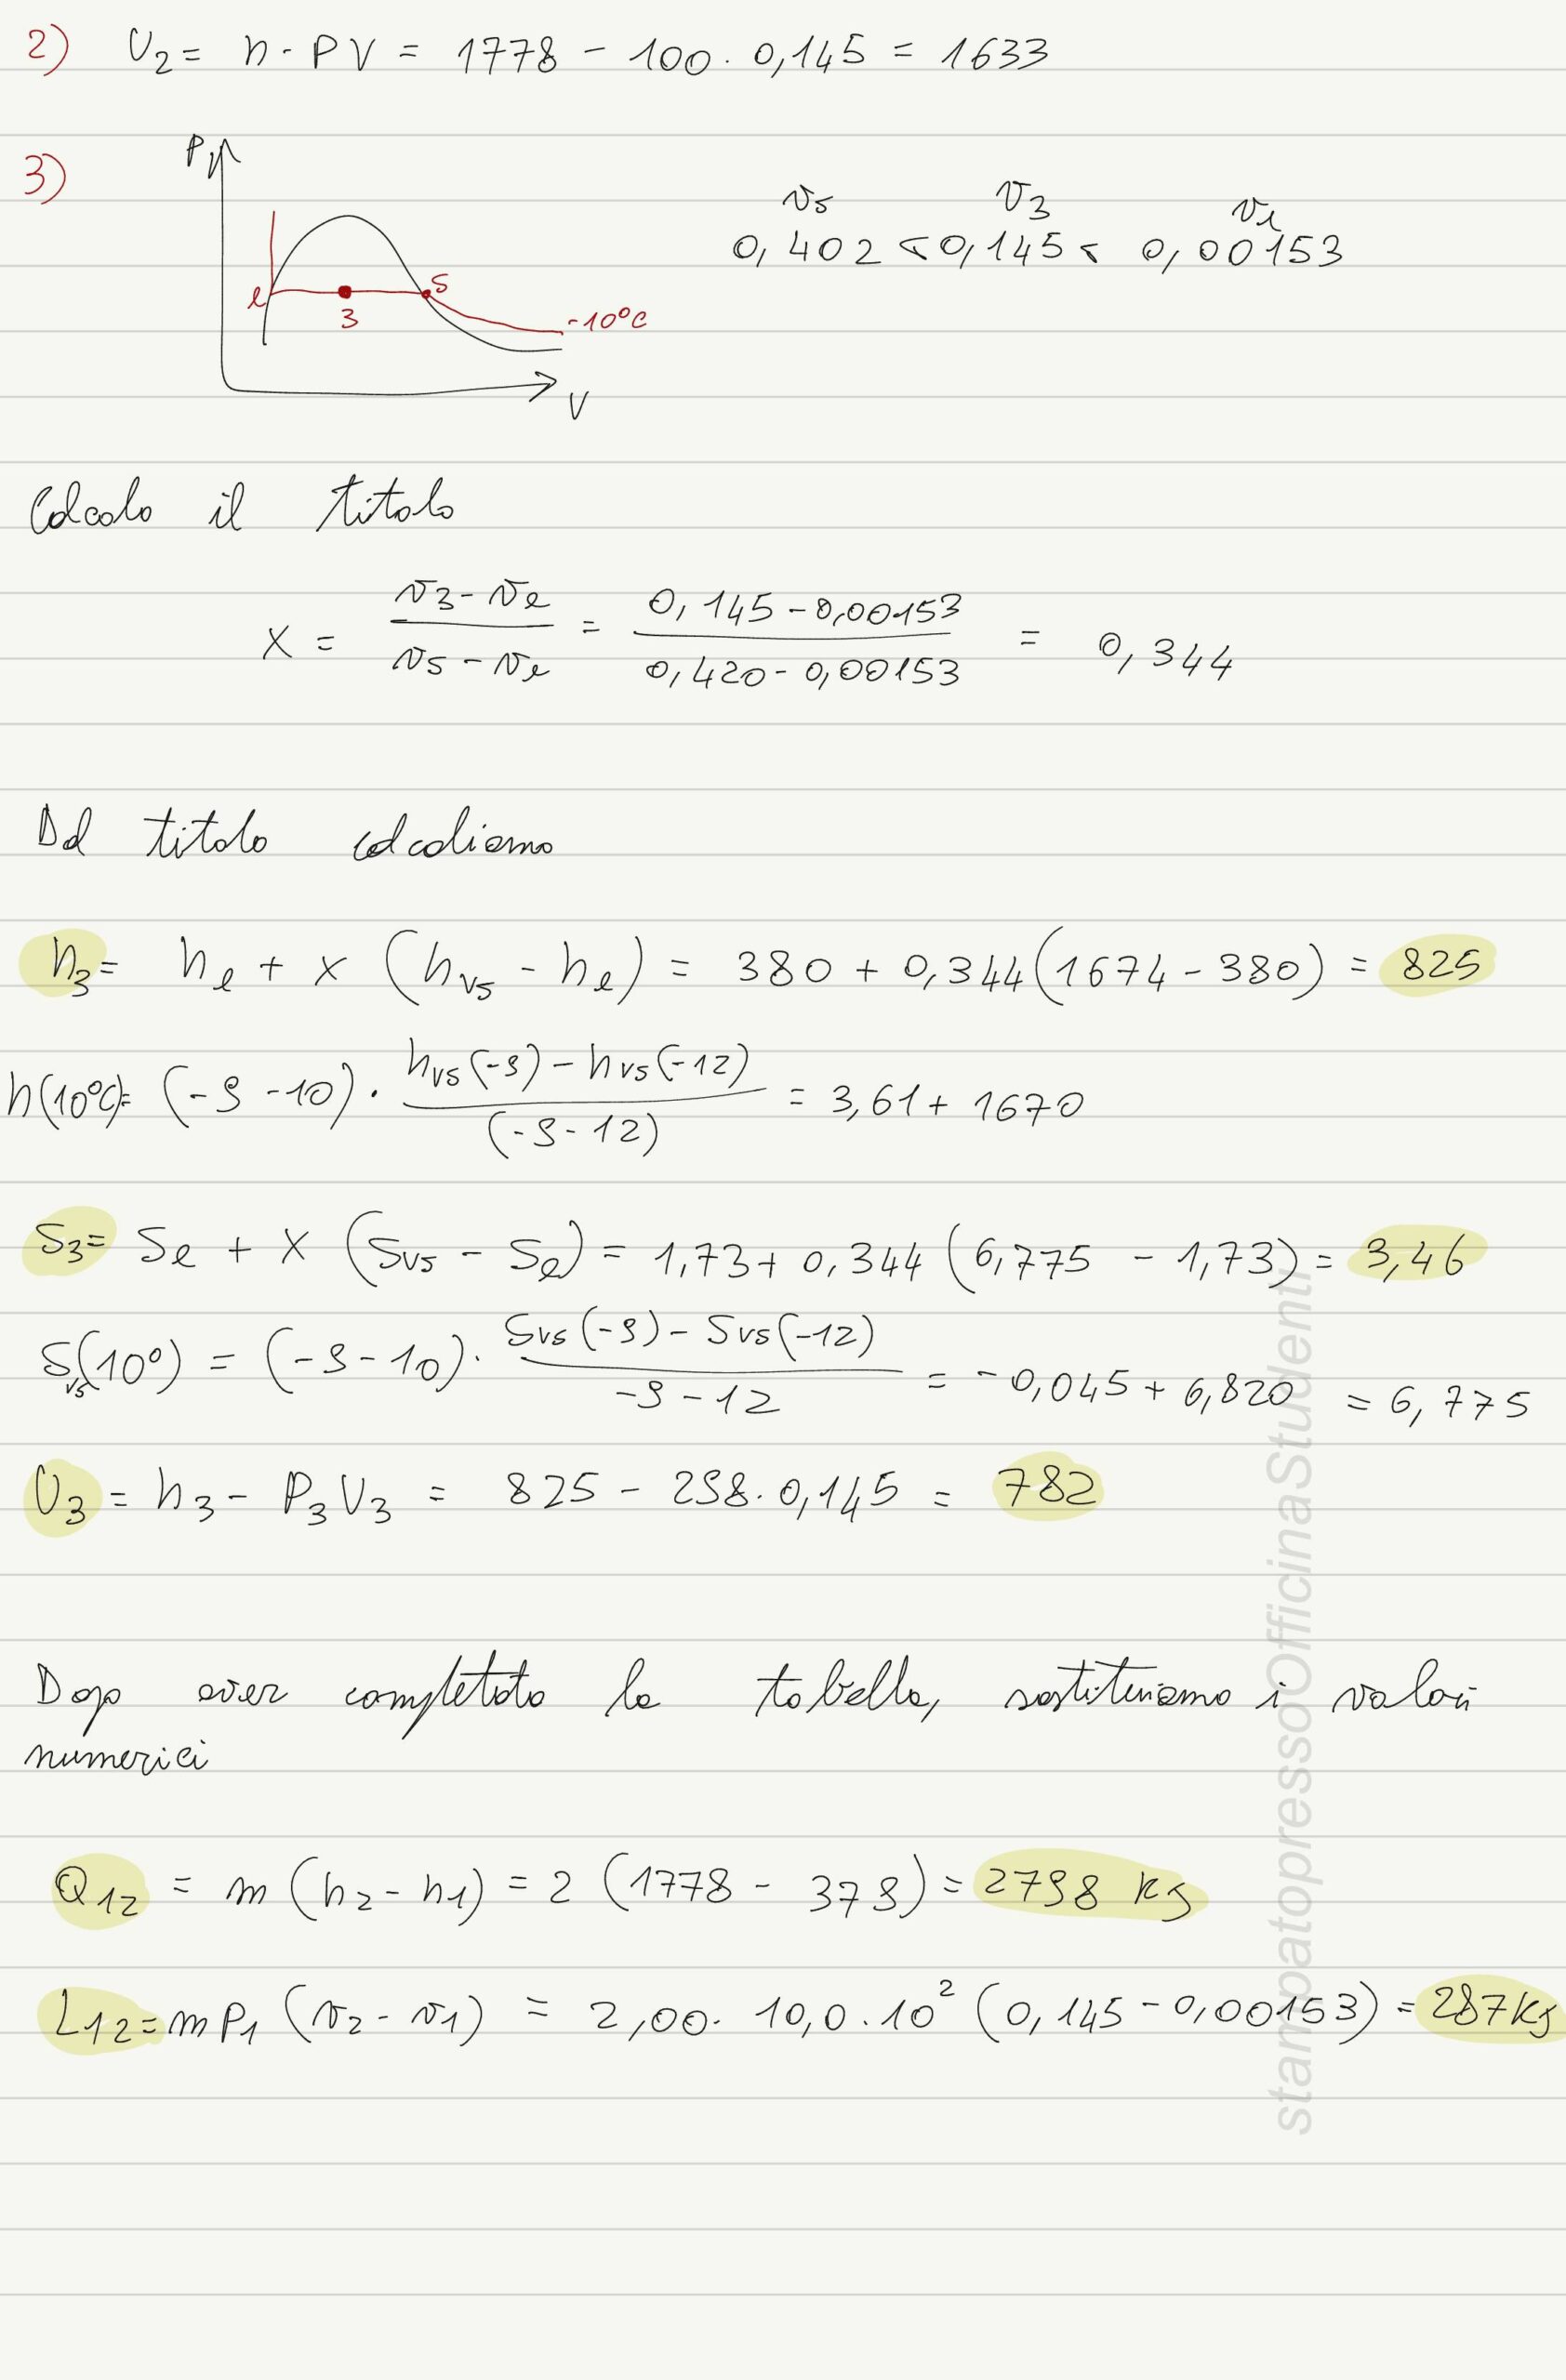 2) U₂ = h - PV = 1778 - 100 · 0,145 = 1633
3)
P
l
3
s
-10°C
V
vs v3 vl
0,402 < 0,145 < 0,00153
Calcolo il titolo
x = (v3 - vl)/(vs - vl) = (0,145 - 0,00153)/(0,420 - 0,00153) = 0,344
Dal titolo calcoliamo
h3 = hl + x (hvs - hl) = 380 + 0,344 (1674 - 380) = 825
h(10°C) = (-9 -10) · (hvs(-9) - hvs(-12))/(-9 - 12) = 3,61 + 1670
S3 = Sl + x (Svs - Sl) = 1,73 + 0,344 (6,775 - 1,73) = 3,46
Svs(10°) = (-9 - 10) · (Svs(-9) - Svs(-12))/(-9 - 12) = -0,045 + 6,820 = 6,775
U3 = h3 - P3V3 = 825 - 298 · 0,145 = 782
Dopo aver completato la tabella, sostituiamo i valori
numerici
Q12 = m (h2 - h1) = 2 (1778 - 379) = 2798 kJ
L12 = m P1 (v2 - v1) = 2,00 · 10,0 · 10² (0,145 - 0,00153) = 287 kJ
stampatopressoOfficinaStudenti